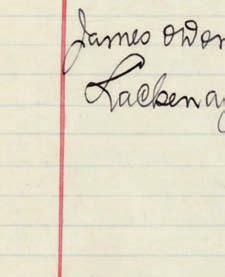 James Owen
Lackenag